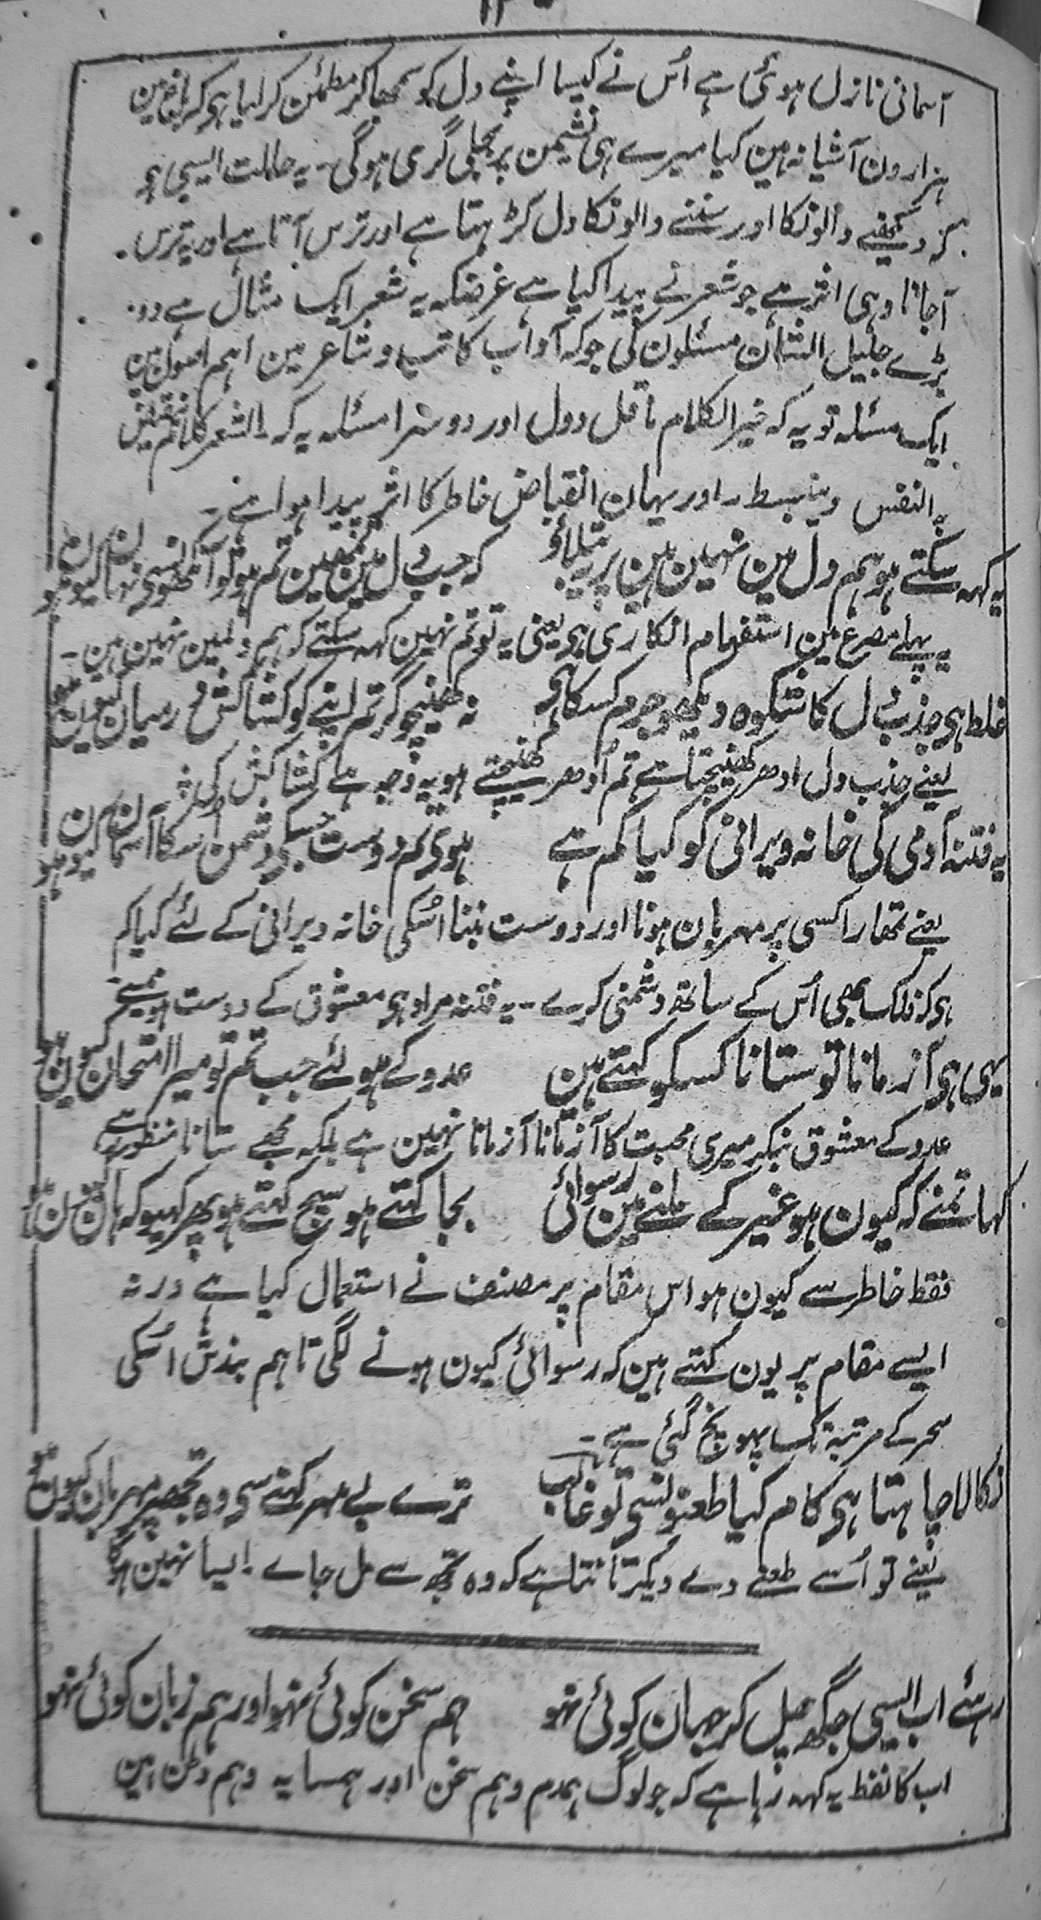 آسمانی نازل ہوئی ہے اُس نے کیسا اپنے دل کو سمجھا کر مطمئن کر لیا ہی کہ باغ مین
ہزارون آشیانہ مین کیا میرے ہی نشیمن پر بجلی گری ہوگی ۔ یہ حالت ایسی ہے
کہ دیکھنے والونکا اور سننے والونکا دل کڑہتا ہے اور ترس آتا ہے اور یہ ترس
آجانا وہی اثر ہے جو شعر نے پیدا کیا ہے غرضکہ یہ شعر ایک مثال ہے دو
بڑے جلیل الشان مسئلون کی جو کہ آداب کاتب و شاعر مین اہم اصول ہین
ایک مسئلہ تو یہ کہ خیر الکلام ما قل و دل اور دوسرا مسئلہ یہ کہ ۔ الشعر کلام ینقبض
بہ النفس وینبسط ۔ اور یہان انقباض خاطر کا اثر پیدا ہوا ہے ۔
یہ کہہ سکتے ہو ہم دل مین نہین ہین پر یہ بتلاؤ کہ جب دل مین تمہین تم ہو تو آنکھونسی نہان کیون ہو
پہلے مصرع مین استفہام انکاری ہی یعنی یہ تو تم نہین کہہ سکتے کہ ہم دلمین نہین ہین ۔
غلط ہی جذب دل کا شکوہ دیکھو جرم کسکا ہی نہ کھینچو گر تم اپنے کو کشاکش درمیان کیون ہو
یعنے جذب دل ادھر کھینچتا ہے تم اُدھر کھینچتے ہو یہ وجہ ہے کشاکش کی
یہ فتنہ آدمی کی خانہ ویرانی کو کیا کم ہے ہوی تم دوست جسکے دشمن اُسکا آسمان کیون ہو
یعنے تمھارا کسی پر مہربان ہونا اور دوست بننا اُسکی خانہ ویرانی کے لئے کیا کم
ہی کہ فلک بھی اُس کے ساتھ دشمنی کرے ۔ یہ فتنہ مراد ہی معشوق کے دوست ہونیسے
یہی ہی آزمانا تو ستانا کسکو کہتے ہین عدو کے ہولئے جب تم تو میرا امتحان کیون ہو
عدو کے معشوق بنکر میری محبت کا آزمانا آزمانا نہین ہے بلکہ مجھے ستانا منظور ہے
کہا تمنے کہ کیون ہو غیر کے ملنے مین رسوائی بجا کہتے ہو سچ کہتے ہو پھر کہیو کہ ہان کیون ہو
فقط خاطر سے کیون ہو اس مقام پر مصنف نے استعمال کیا ہے ورنہ
ایسے مقام پر یون کہتے ہین کہ رسوائی کیون ہونے لگی تاہم بندش اُسکی
سحر کے مرتبہ تک پہونچ گئی ہے ۔
نکالا چاہتا ہی کام کیا طعنونسی تو غالب ترے بے مہر کہنے سی وہ تجھپر مہربان کیون ہو
یعنے تو اُسے طعنے دے دیکر جانتا ہے کہ وہ تجھ سے مل جاے ۔ ایسا نہین ہوگا
رہئے اب ایسی جگھ چل کر جہان کوئی نہو ہم سخن کوئی نہو اور ہم زبان کوئی نہو
اب کا لفظ یہ کہہ رہا ہے کہ جو لوگ ہمدم و ہم سخن اور ہمسایہ و ہم وطن ہین